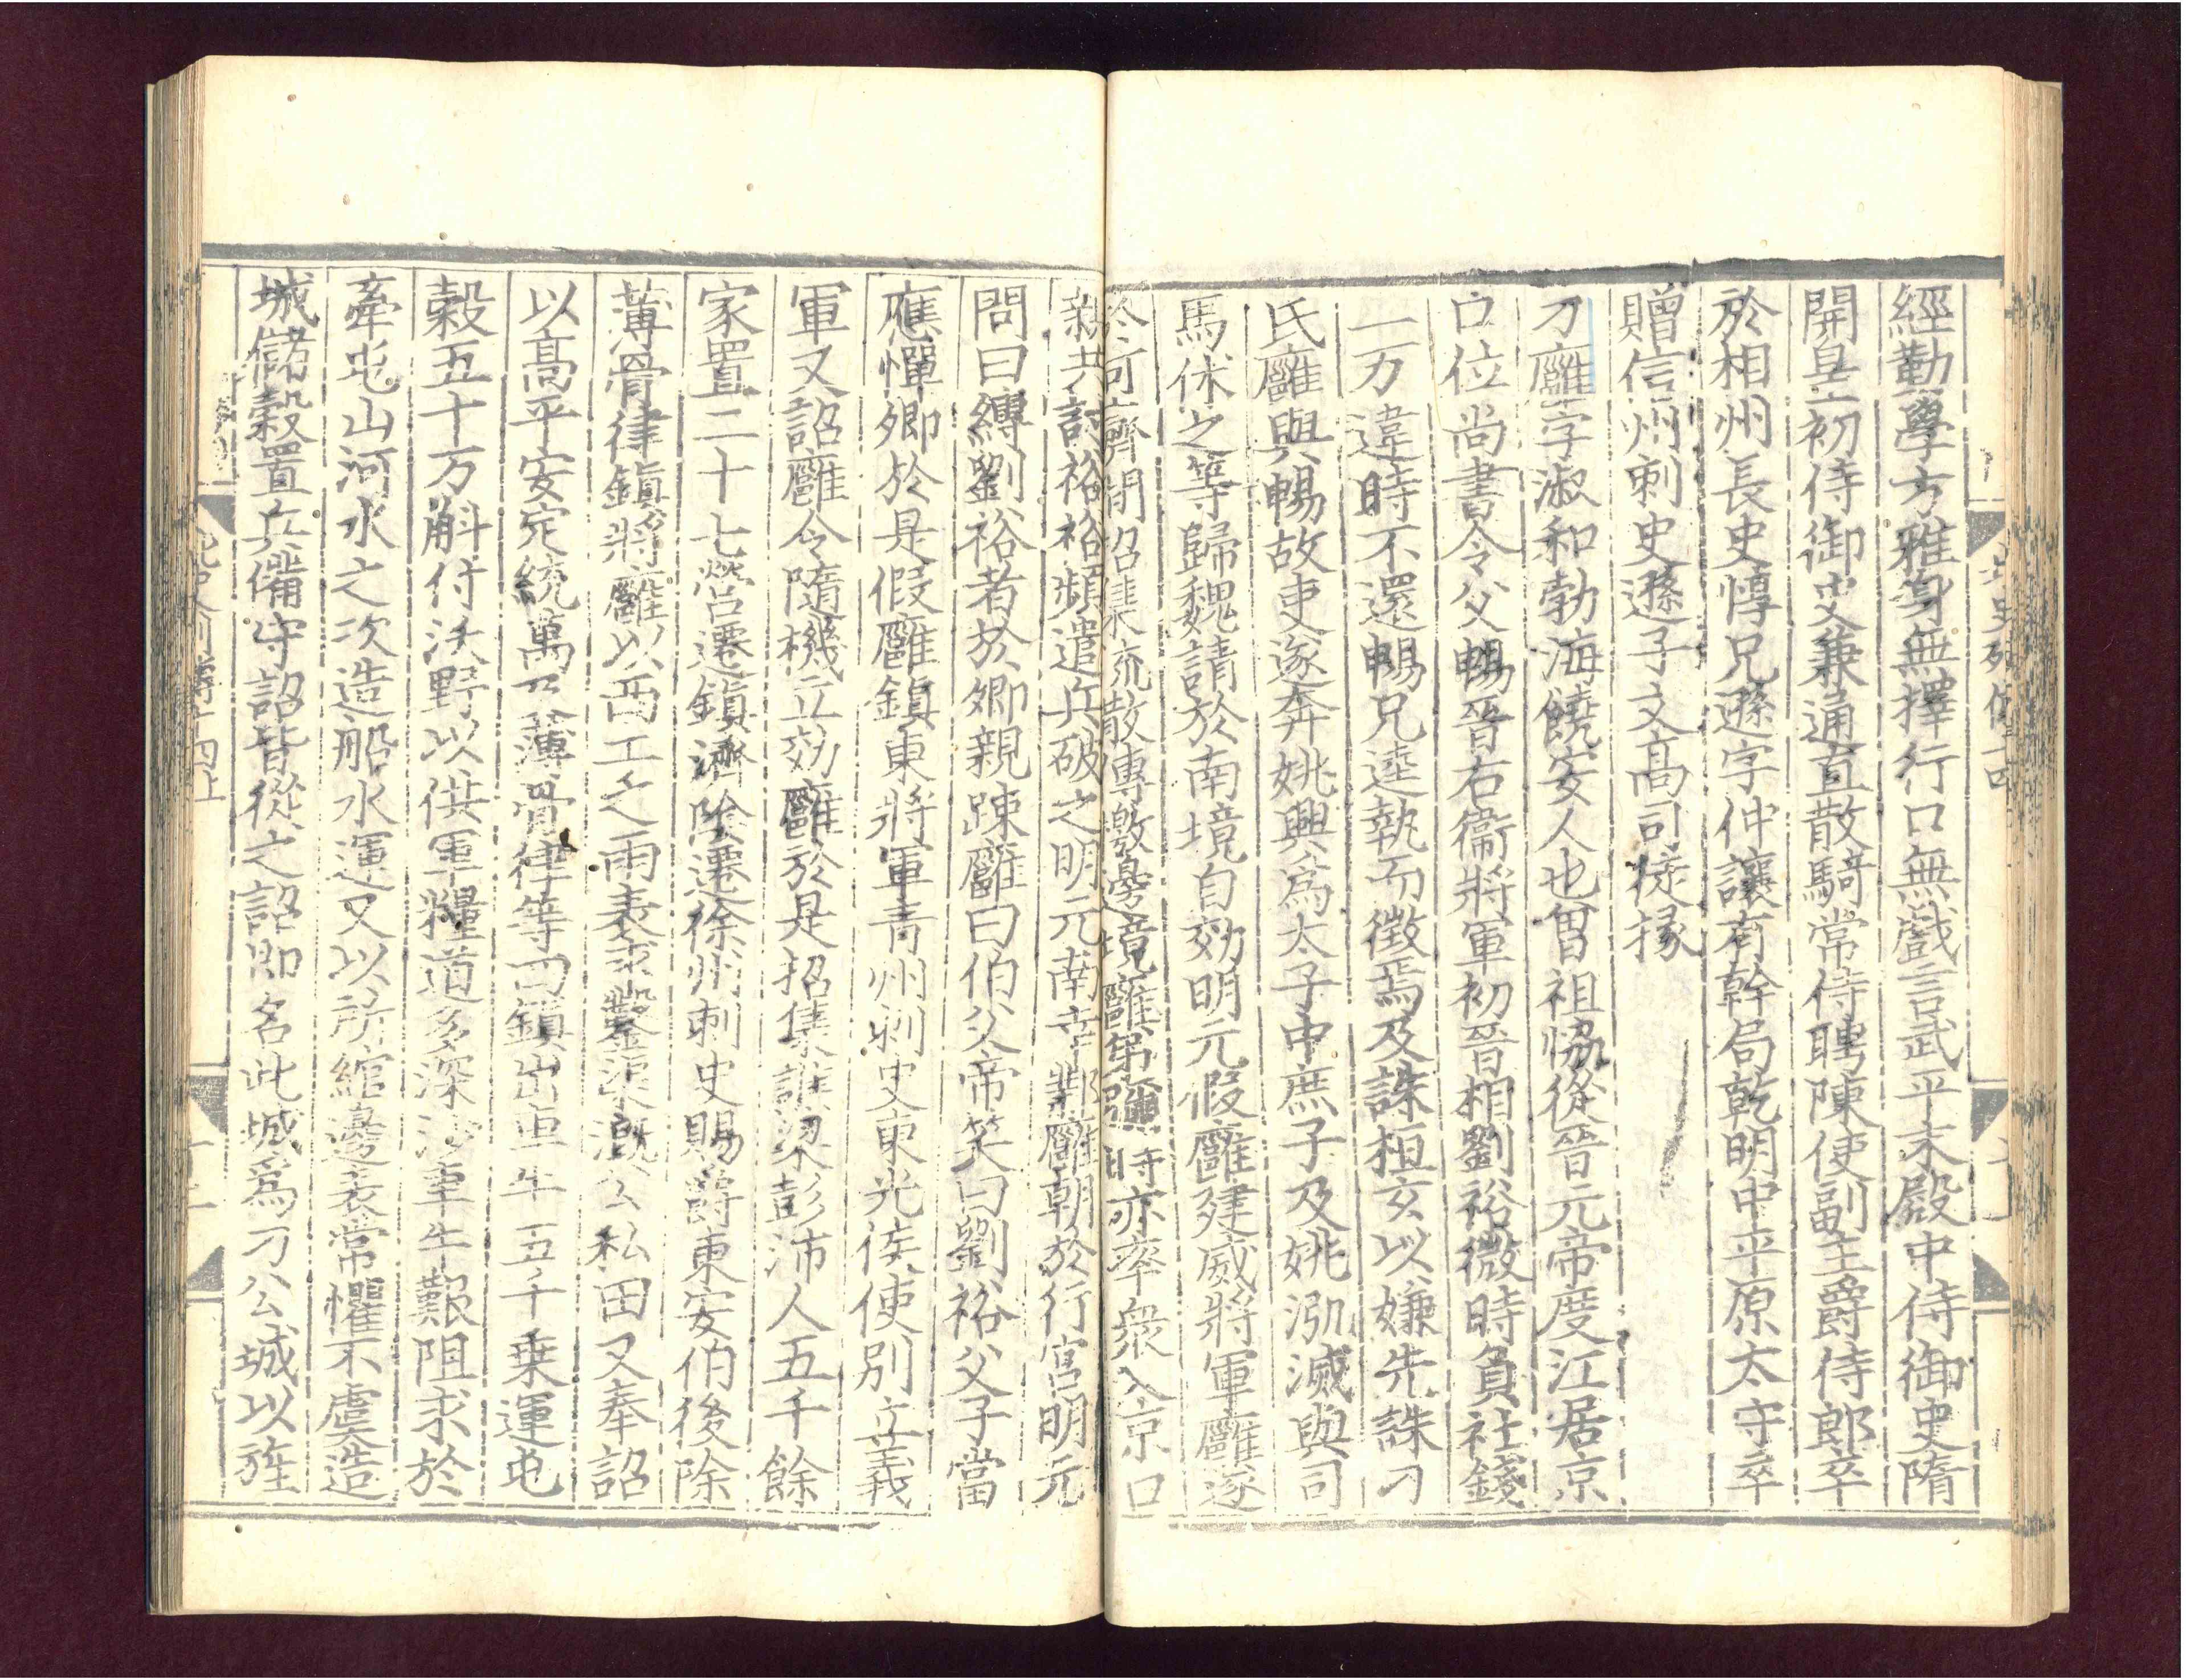 經勤學方雅身無擇行口無戲言武平末殿中侍御史隋
開皇初侍御史兼通直散騎常侍聘陳使副主爵侍郎卒
於相州長史惇兄遜字仲讓有幹局乾明中平原太守卒
贈信州刺史遜子文高司徒掾
刁雝字淑和勃海饒安人也曾祖恊從晉元帝度江居京
口位尚書令父暢晉右衞將軍初晉相劉裕微時負社錢
一万違時不還暢兄逵執而徵焉及誅桓玄以嫌先誅刁
氏雝與暢故吏遂奔姚興爲太子中庶子及姚泓滅與司
馬休之等歸魏請於南境自効明元假雝建威將軍雝遂
於河濟閒招集流散傳檄邊境雝弟彌時亦率衆入京口
親共討裕裕頻遣兵破之明元南幸鄴雝朝於行宮明元
問曰縛劉裕者於卿親踈雝曰伯父帝笑曰劉裕父子當
應憚卿於是假雝鎮東將軍青州刺史東光侯使別立義
軍又詔雝令隨機立効雝於是招集譙梁彭沛人五千餘
家置二十七營遷鎮濟陰遷徐州刺史賜爵東安伯後除
薄骨律鎮將雝以西土乏雨表求鑿渠溉公私田又奉詔
以高平安定統萬及薄骨律等四鎮出車牛五千乗運屯
榖五十万斛付沃野以供軍糧道多深沙車牛艱阻求於
牽屯山河水之次造船水運又以所綰邊表常懼不虞造
城儲榖置兵備守詔皆從之詔即名此城爲刁公城以旌
北史列傳十四
北史列傳十四上